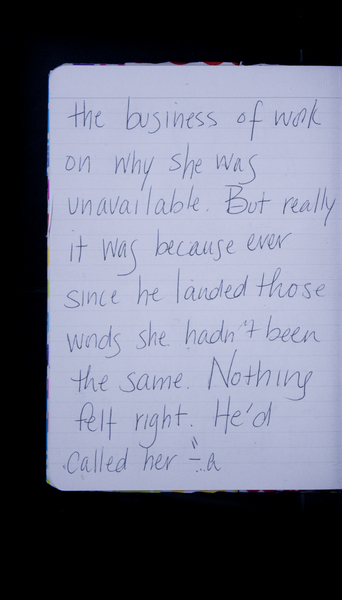 the business of work
on why she was
unavailable. But really
it was because ever
since he landed those
words she hadn't been
the same. Nothing
felt right. He'd
called her "a